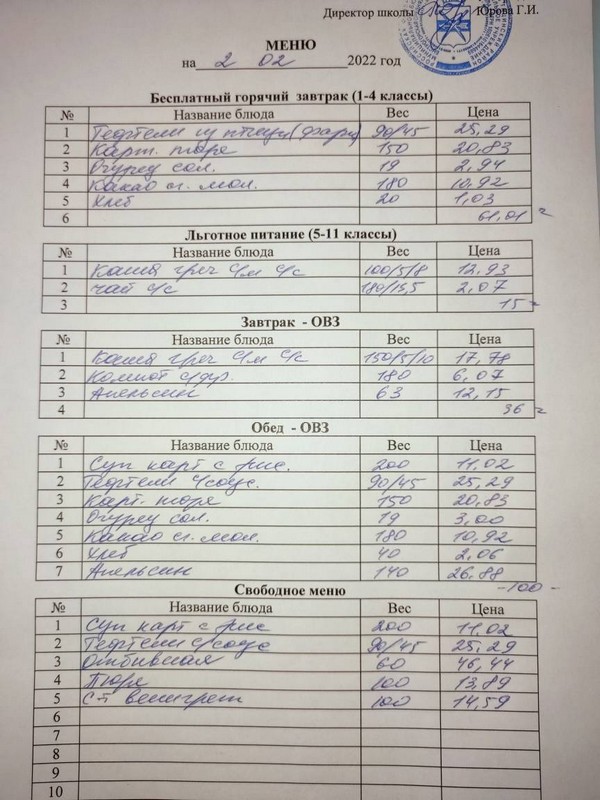 Директор школы Юрова Г.И.
МЕНЮ
на 2 02 2022 год
Бесплатный горячий завтрак (1-4 классы)
№ Название блюда Вес Цена
1 Тефтели из птицы (фарш) 90/45 25,29
2 Карт. пюре 150 20,83
3 Огурец сол. 19 2,94
4 Какао сг. мол. 180 10,92
5 Хлеб 20 1,03
6 61,01
Льготное питание (5-11 классы)
№ Название блюда Вес Цена
1 Каша греч с/м с/с 100/5/8 12,93
2 чай с/с 180/13,5 2,07
3 15
Завтрак - ОВЗ
№ Название блюда Вес Цена
1 Каша греч с/м с/с 150/5/10 17,78
2 Компот с/фр. 180 6,07
3 Апельсин 63 12,15
4 36
Обед - ОВЗ
№ Название блюда Вес Цена
1 Суп карт с рис. 200 11,02
2 Тефтели с/соус. 90/45 25,29
3 Карт. пюре 150 20,83
4 Огурец сол. 19 3,00
5 Какао сг. мол. 180 10,92
6 Хлеб 40 2,06
7 Апельсин 140 26,88
-100-
Свободное меню
№ Название блюда Вес Цена
1 Суп карт с рис 200 11,02
2 Тефтели с/соус 90/45 25,29
3 Отбивная 60 46,44
4 Пюре 100 13,89
5 С-т венигрет 100 14,59
6
7
8
9
10